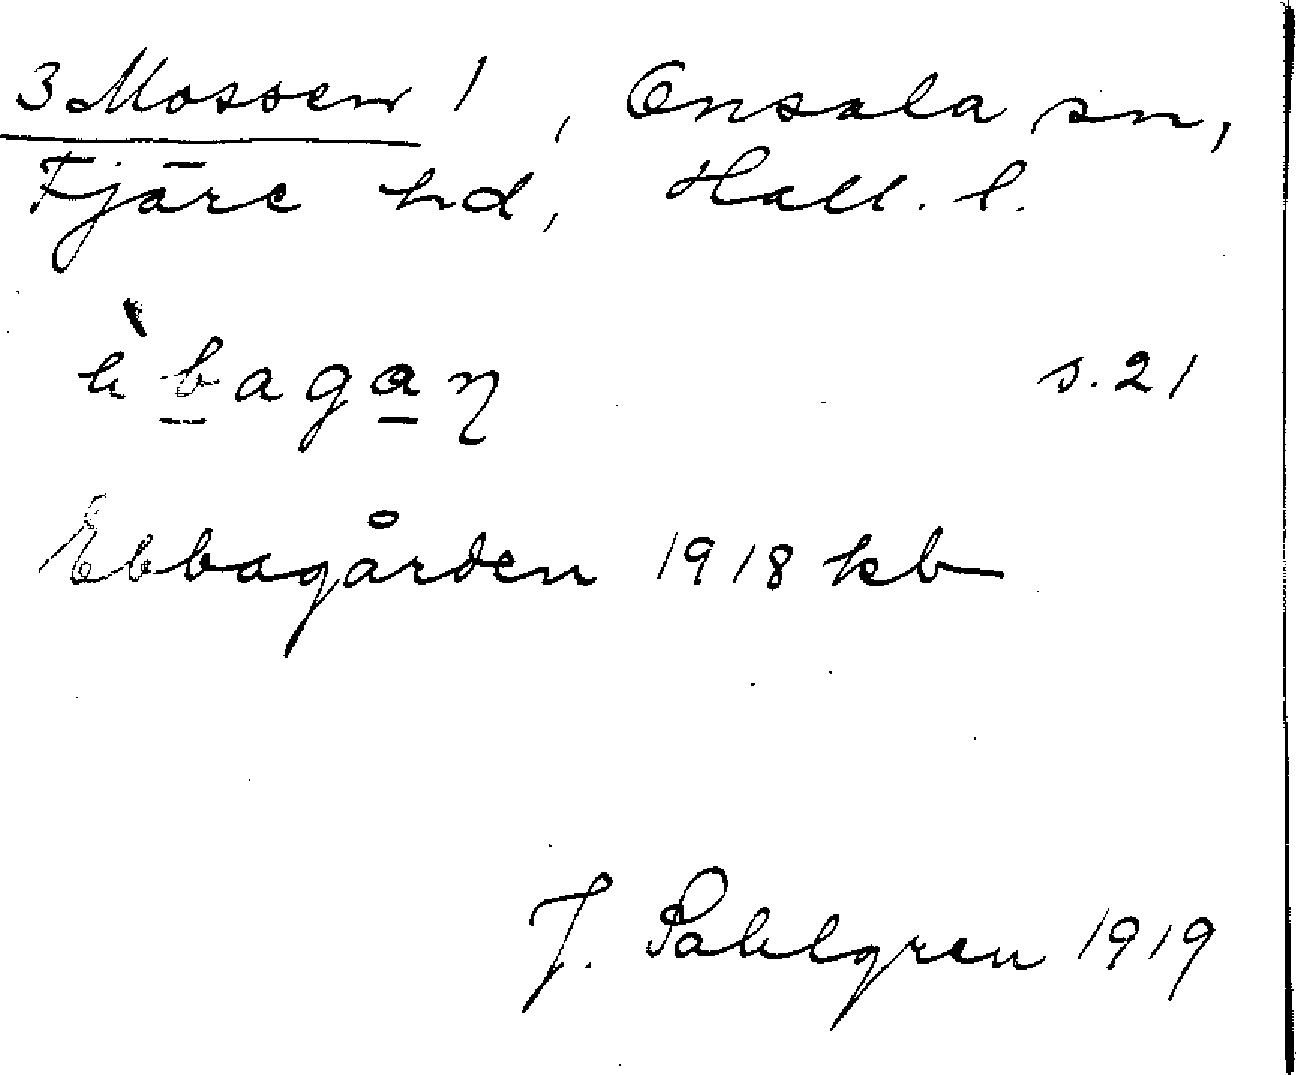 3 Mossen 1, Onsala sn,
Fjäre hd, Hall. l.
s. 21
Ebbagården 1918 kb
J. Sahlgren 1919